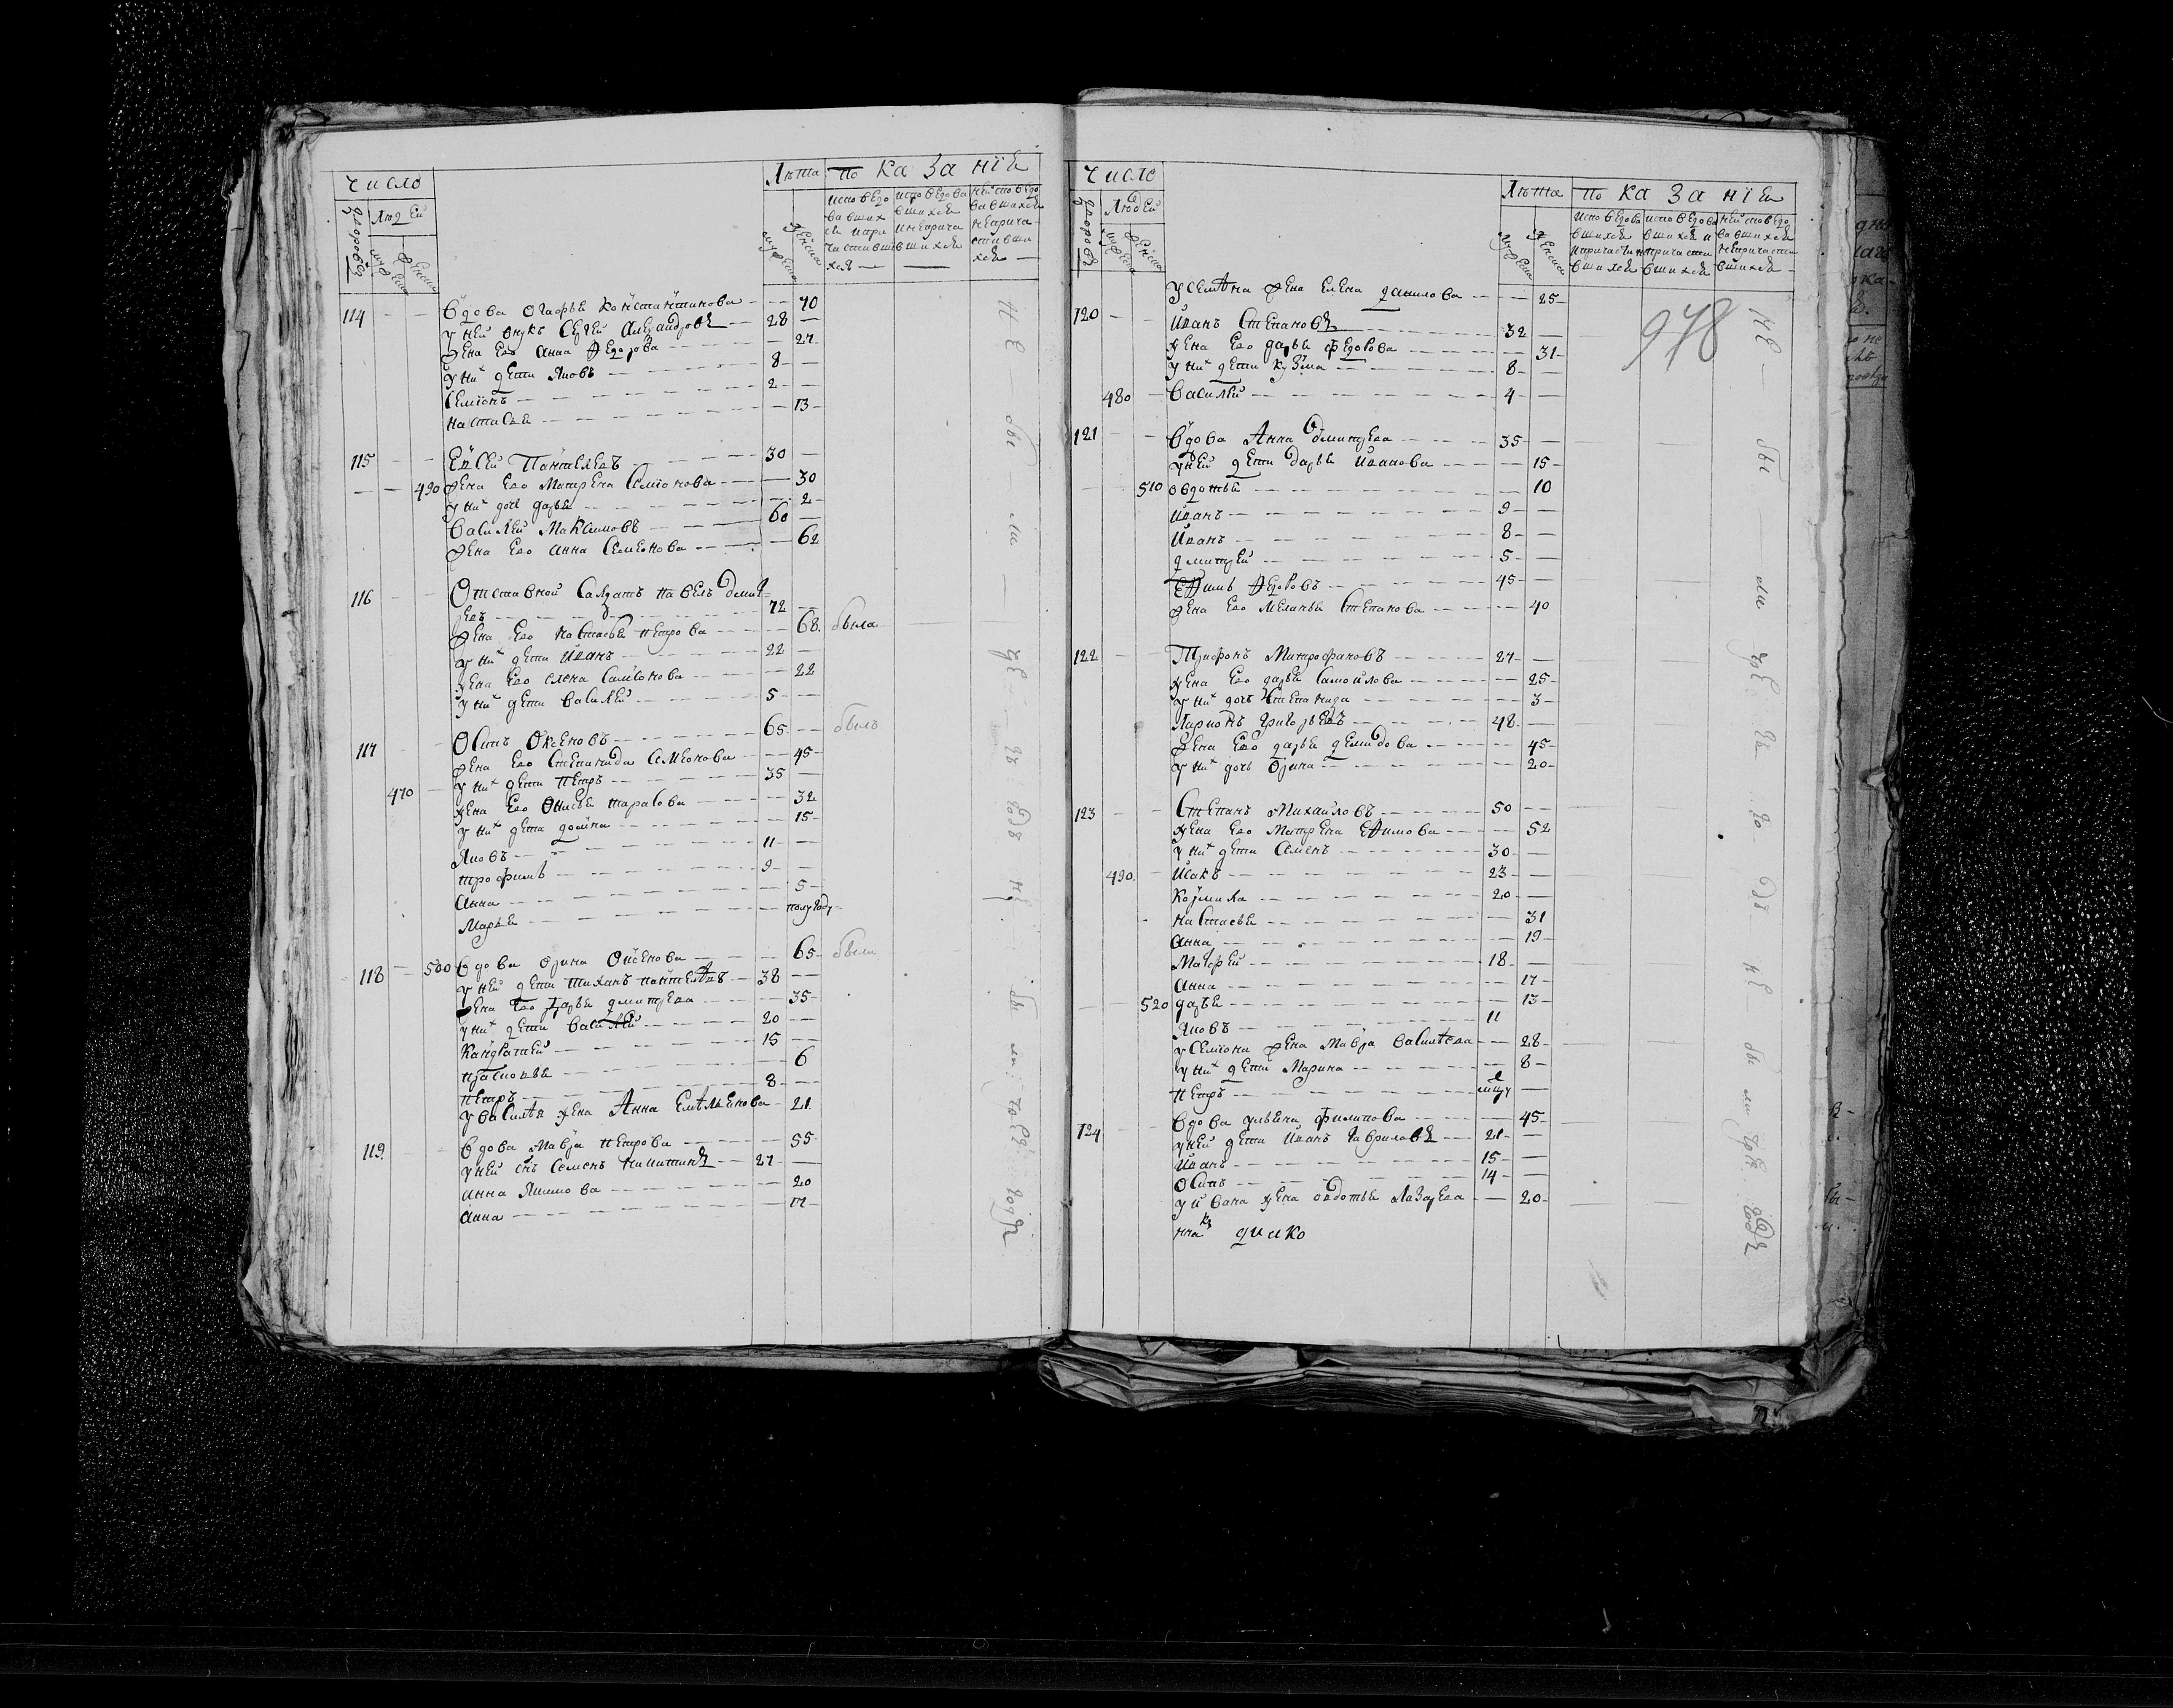 Число
Лѣта
по ка за нїе
дворовъ
Людей
мужеска
женска
мужеска
женска
исповедо
вавших
ся и при
частивши
хся —
исповедова
вшихся
инеприча
вшихся
неисповедо
вавшихся
неприча
стивши
хся —
114 — — Вдова Огафья Константинова — — 70
у ней внукъ Сергей Александровъ — 28 —
жена его анна Федорова — — 27
у них дети Яковъ — 8 —
Семионъ — 2 —
настасья — — 13
115 — — Евсей Пантелеевъ — 30 —
— — 490 жена его Матрена Семионова — — 30
у них дочь дарья — — 2
василей Максимовъ — 60 —
жена его анна Семенова — — 62
116 — — Отставной Салдатъ павелъ дмит
реевъ — 72 —
жена его настасья петрова — — 68 была
у них дети иванъ — 22 —
жена его елена Самсонова — — 22
у них дети василей — 5 —
117 Осипъ Оксеновъ — 65 — былъ
жена его Степанида Семионова — — 45
470 — у них дети петръ — 35 —
жена его Онисья тарасова — — 32
у них дети домна — — 15
Яковъ — 11 —
трофимъ — 9 —
Анна — — 5
Марья — — полугоду
118 — 500 Вдова орина Оксенова — — 65 была
у ней дети тиханъ пантелѣевъ — 38 —
жена его дарья дмитрева — — 35
у них дети василей — 20 —
Кандратей — 15 —
прасковья — — 6
петръ — 8 —
у василья жена Анна Емѣльенова — 21
119 — — Вдова мавра петрова — — 55
у ней снъ Семенъ никитинъ — 27 —
анна Якимова — — 20
анна — — 17
Число
Лѣта
по ка за нїе
дворовъ
Людей
мужеска
женска
мужеска
женска
исповедова
вшихся
и причасти
вшихся
исповедова
вшихся и
непричасти
вшихся
неисповедо
вавшихся
непричасти
вшихся
978
у семѣна жена елена данилова — — 25
120 — — иванъ Степановъ — 32 —
жена его дарья федорова — — 31
у них дети кузма — 8 —
480 — василей — 4 —
121 — — Вдова Анна дмитрева — 35 —
у ней дети дарья иванова — — 15
— 510 овдотья — — 10
иванъ — 9 —
иванъ — 8 —
дмитрей — 5 —
ефимъ федоровъ — 45 —
жена его меланья Степанова — — 40
122 — — Трифонъ Митрофановъ — 27 —
жена его дарья Самойлова — — 25
у них дочь Степанида — — 3
Ларионъ григорьевъ — 48 —
жена его дарья демидова — — 45
у них дочь орина — — 20
123 — — Степанъ михайловъ — 50 —
жена его Матрена ефимова — — 52
у них дети Семенъ — 30 —
490 — исакъ — 23 —
— 20 —
настасья — — 31
анна — — 19
Матфей — 18 —
анна — — 17
— 520 дарья — — 13
Яковъ — 11
у Семиона жена мавра василѣева — — 28
у них дети марина — — 8
петръ —
124 — — Вдова ульяна филипова — — 45
у ней дети иванъ гавриловъ — 21 —
иванъ — 15 —
осипъ — 14 —
у ивана жена овдотья лазарева — — 20
дико
не — бы — ли
не — бы — ли